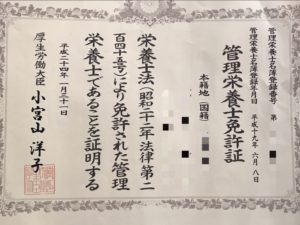 管理栄養士名簿登録番号 第
管理栄養士名簿登録年月日 平成十九年 六月 八日
管理栄養士免許証
本籍地(国籍)
栄養士法(昭和二十二年法律第二
百四十五号)により免許された管理
栄養士であることを証明する
平成二十四年 一月三十一日
厚生労働大臣 小宮山 洋子